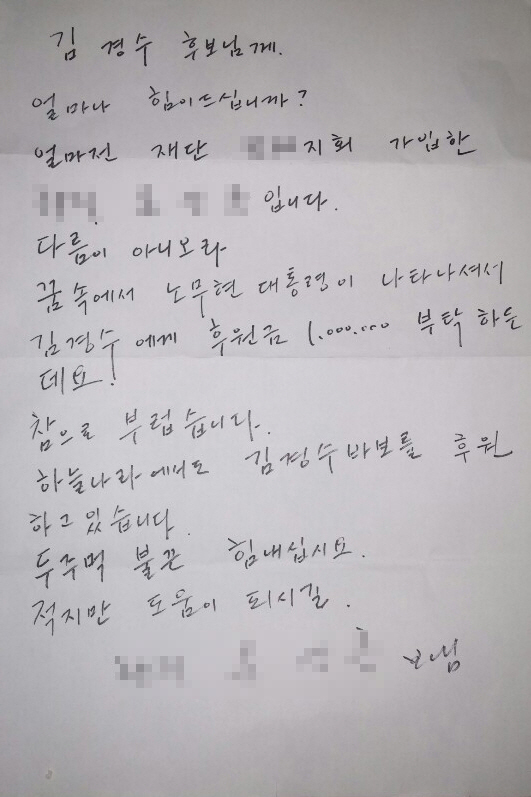 김 경수 후보님께.
얼마나 힘이드십니까?
얼마전 재단 지회 가입한
입니다.
다름이 아니오라
꿈속에서 노무현 대통령이 나타나셔서
김경수에게 후원금 1.000.000 부탁 하든
데요!
참으로 부럽습니다.
하늘나라에서도 김경수바보를 후원
하고 있습니다.
두주먹 불끈 힘내십시요.
적지만 도움이 되시길.
보냄